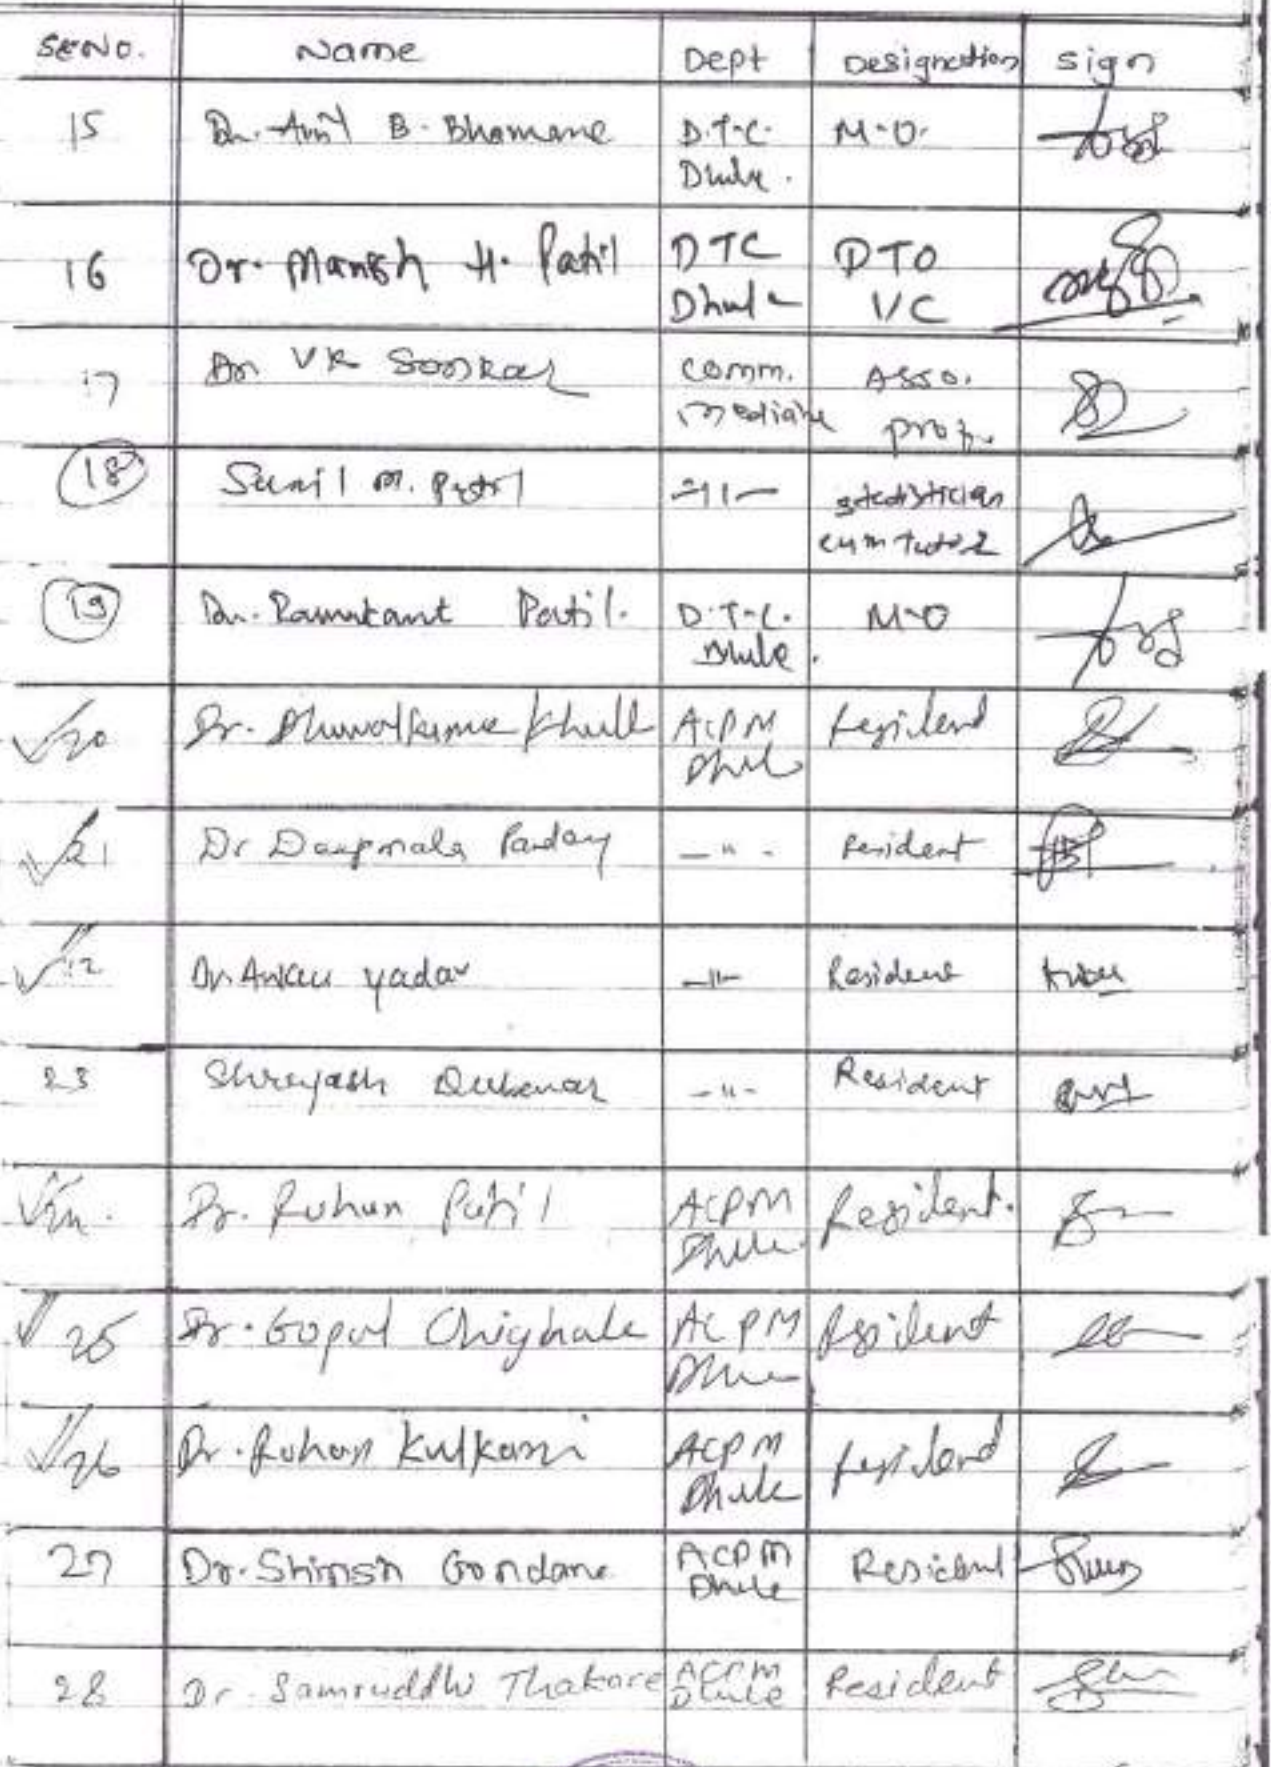 SR NO. Name Dept Designation Sign
15 Dr. Amit B. Bhamane D.T.C. Dhule. M.O.
16 Dr. Manish H. Patil DTC Dhule DTO I/C
17 Dr VR Sonkar Comm. medicine Asso. prof.
18 Sunil M. Patil -11- statistician cum tutor
19 Dr. Ramakant Patil. D.T.C. Dhule. M.O
20 Dr. ACPM Dhule Resident
21 Dr Deepmala Panday -"- Resident
Dr. yadav -11- Resident
23 Shreyash -"- Resident
Dr. Rohan Patil ACPM Dhule Resident.
25 Dr. Gopal Chighale ACPM Dhule Resident
26 Dr. Rohan Kulkarni ACPM Dhule Resident
27 Dr. Gondane ACPM Dhule Resident
28 Dr. Samruddhi Thakare ACPM Dhule Resident